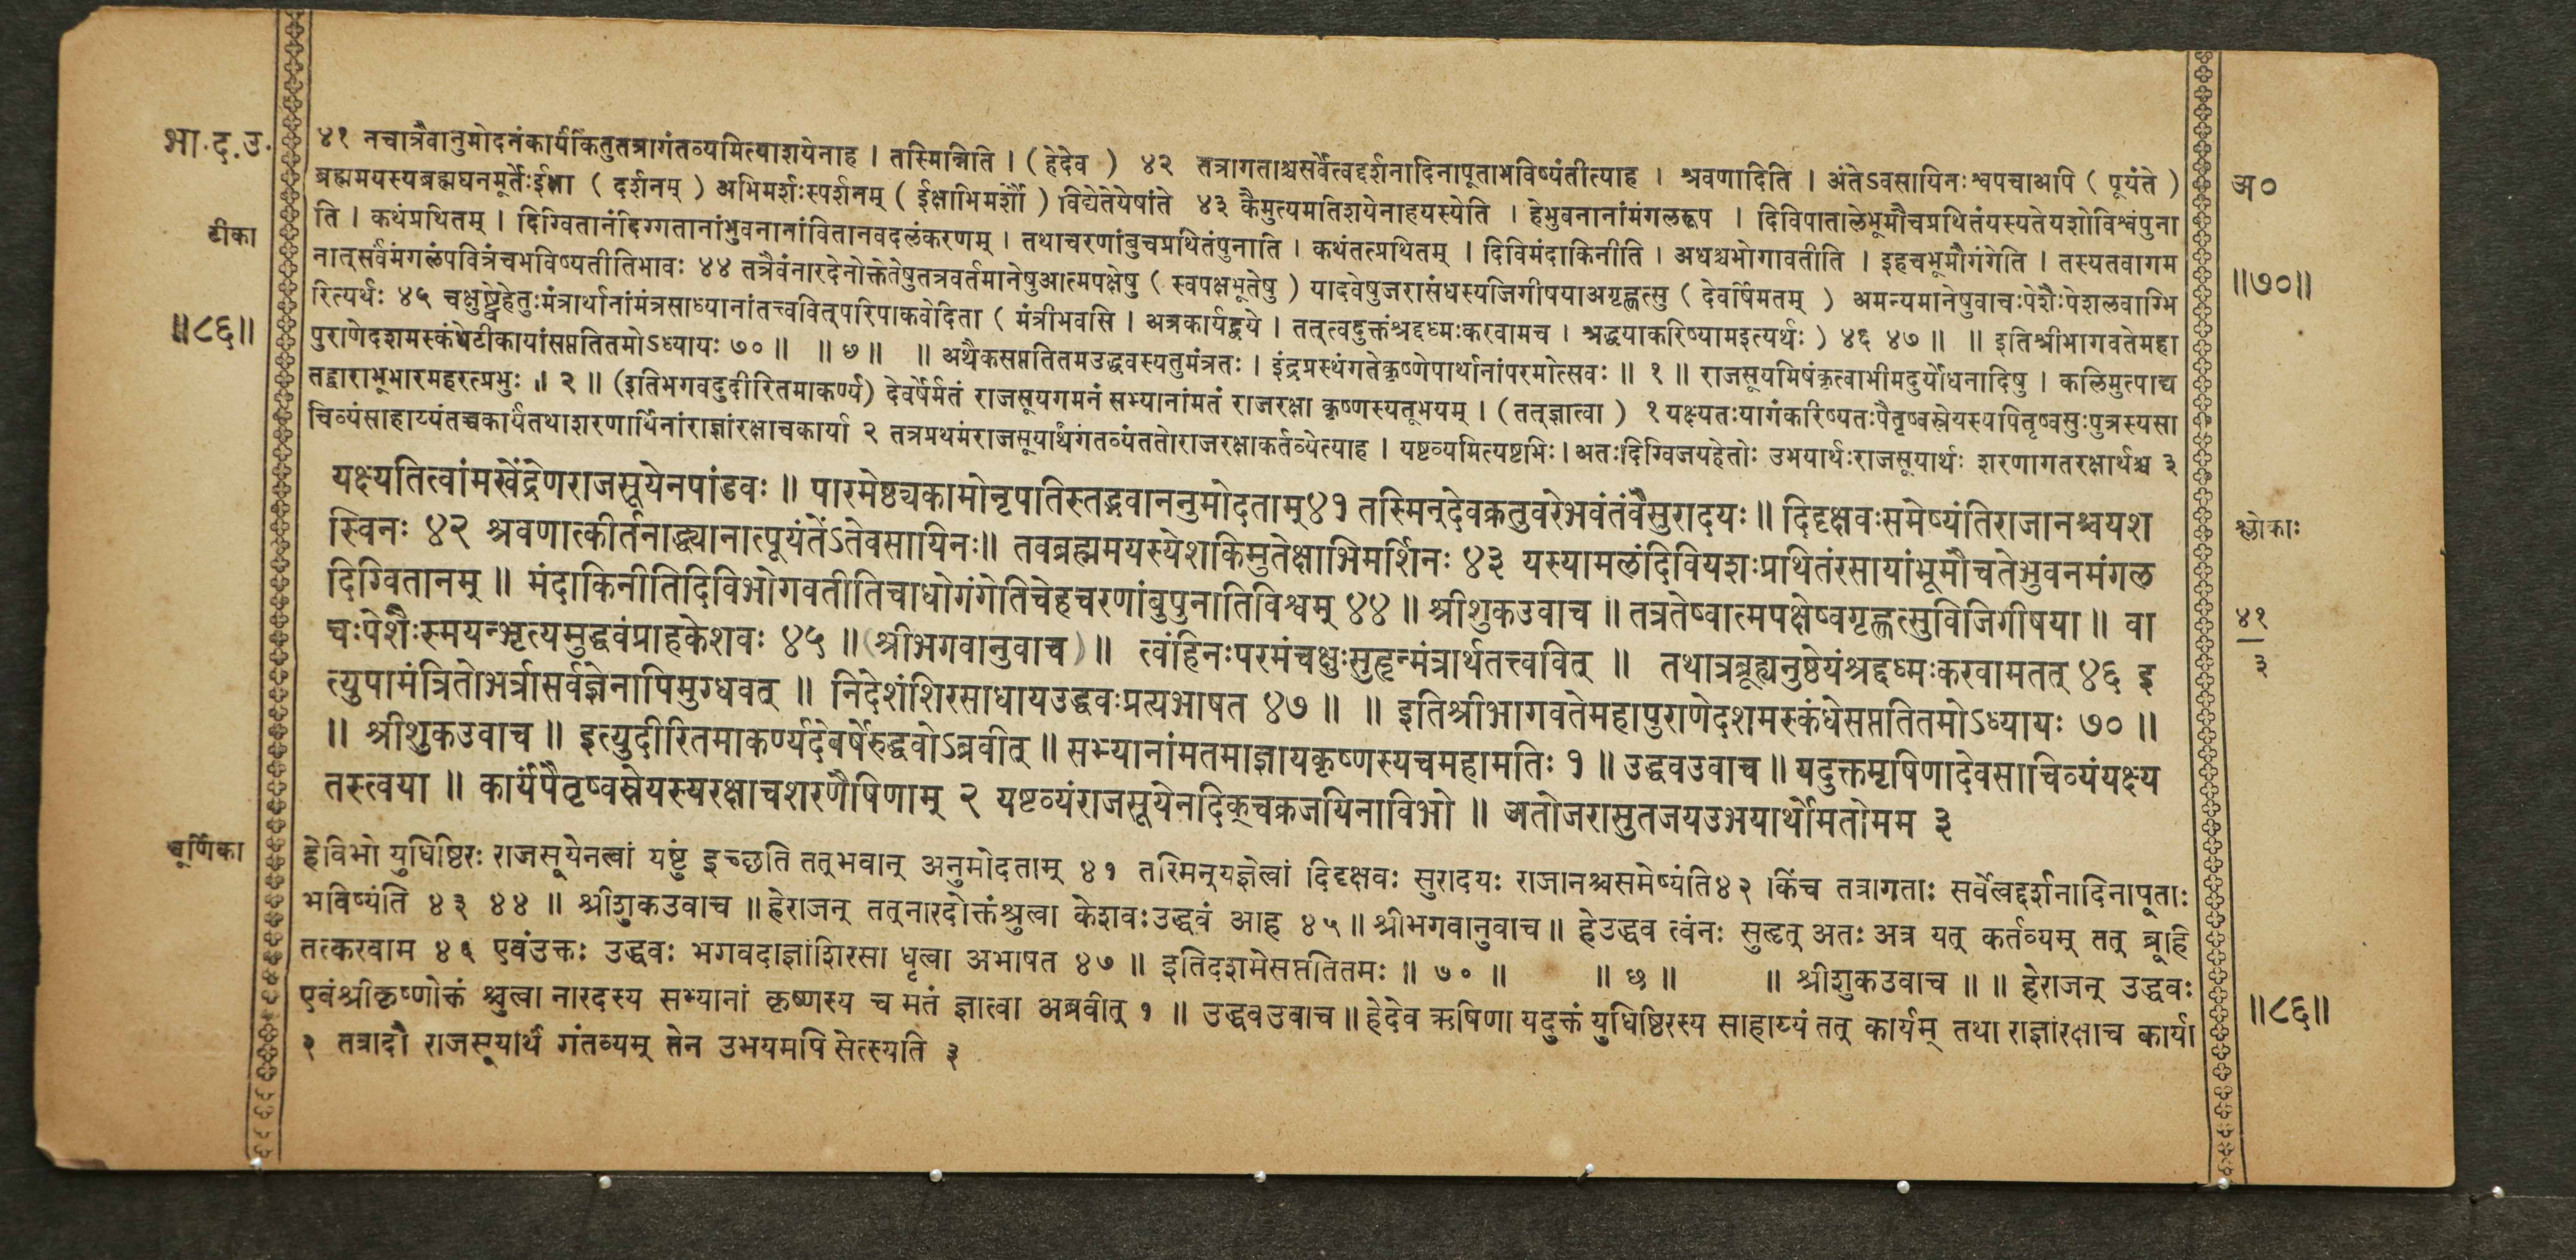 भा.द.उ.
टीका
॥८६॥
४१ नचात्रैवानुमोदनंकार्यंकिंतुतत्रागंतव्यमित्याशयेनाह । तस्मिन्निति । ( हेदेव ) ४२ तत्रागताश्चसर्वेत्वद्दर्शनादिनापूताभविष्यंतीत्याह । श्रवणादिति । अंतेऽवसायिनःश्वपचाअपि ( पूयंते )
ब्रह्ममयस्यब्रह्मघनमूर्तेःईक्षा ( दर्शनम् ) अभिमर्शःस्पर्शनम् ( ईक्षाभिमर्शौ ) विद्येतेयेषांते ४३ कैमुत्यमतिशयेनाहयस्येति । हेभुवनानांमंगलरूप । दिविपातालेभूमौचप्रथितंयस्यतेयशोविश्वंपुना
ति । कथंप्रथितम् । दिग्वितानंदिग्गतानांभुवनानांवितानवदलंकरणम् । तथाचरणांबुचप्रथितंपुनाति । कथंतत्प्रथितम् । दिविमंदाकिनीति । अधश्चभोगावतीति । इहचभूमौगंगेति । तस्यतवागम
नात्सर्वमंगलंपवित्रंचभविष्यतीतिभावः ४४ तत्रैवंनारदेनोक्तेतेषुतत्रवर्तमानेषुआत्मपक्षेषु ( स्वपक्षभूतेषु ) यादवेषुजरासंधस्यजिगीषयाअगृह्णत्सु ( देवर्षिमतम् ) अमन्यमानेषुवाचःपेशैःपेशलवाग्भि
रित्यर्थः ४५ चक्षुष्ट्वेहेतुःमंत्रार्थानांमंत्रसाध्यानांतत्त्ववित्परिपाकवेदिता ( मंत्रीभवसि । अत्रकार्यद्वये । तत्त्वदुक्तंश्रद्दध्मःकरवामच । श्रद्धयाकरिष्यामइत्यर्थः ) ४६ ४७ ॥ ॥ इतिश्रीभागवतेमहा
पुराणेदशमस्कंधेटीकायांसप्ततितमोऽध्यायः ७० ॥ ॥ छ ॥ ॥ अथैकसप्ततितमउद्धवस्यतुमंत्रतः । इंद्रप्रस्थंगतेकृष्णेपार्थानांपरमोत्सवः ॥ १ ॥ राजसूयमिषंकृत्वाभीमदुर्योधनादिषु । कलिमुत्पाद्य
तद्वाराभूभारमहरत्प्रभुः ॥ २ ॥ (इतिभगवदुदीरितमाकर्ण्य) देवर्षेर्मतं राजसूयगमनं सभ्यानांमतं राजरक्षा कृष्णस्यतूभयम् । (तत्ज्ञात्वा ) १ यक्ष्यतःयागंकरिष्यतःपैतृष्वस्रेयस्यपितृष्वसुःपुत्रस्यसा
चिव्यंसाहाय्यंतच्चकार्यंतथाशरणार्थिनांराज्ञांरक्षाचकार्या २ तत्रप्रथमंराजसूयार्थंगंतव्यंततोराजरक्षाकर्तव्येत्याह । यष्टव्यमित्यष्टभिः । अतःदिग्विजयहेतोः उभयार्थःराजसूयार्थः शरणागतरक्षार्थश्च ३
यक्ष्यतित्वांमखेंद्रेणराजसूयेनपांडवः ॥ पारमेष्ठ्यकामोनृपतिस्तद्भवाननुमोदताम्४१ तस्मिन्देवक्रतुवरेभवंतंवैसुरादयः ॥ दिदृक्षवःसमेष्यंतिराजानश्चयश
स्विनः ४२ श्रवणात्कीर्तनाद्ध्यानात्पूयंतेंऽतेवसायिनः॥ तवब्रह्ममयस्येशकिमुतेक्षाभिमर्शिनः ४३ यस्यामलंदिवियशःप्रथितंरसायांभूमौचतेभुवनमंगल
दिग्वितानम् ॥ मंदाकिनीतिदिविभोगवतीतिचाधोगंगेतिचेहचरणांबुपुनातिविश्वम् ४४ ॥ श्रीशुकउवाच ॥ तत्रतेष्वात्मपक्षेष्वगृह्णत्सुविजिगीषया ॥ वा
चःपेशैःस्मयन्भृत्यमुद्धवंप्राहकेशवः ४५ ॥ (श्रीभगवानुवाच) ॥ त्वंहिनःपरमंचक्षुःसुहृन्मंत्रार्थतत्त्ववित् ॥ तथात्रब्रूह्यनुष्ठेयंश्रद्दध्मःकरवामतत् ४६ इ
त्युपामंत्रितोभर्त्रासर्वज्ञेनापिमुग्धवत् ॥ निदेशंशिरसाधायउद्धवःप्रत्यभाषत ४७ ॥ ॥ इतिश्रीभागवतेमहापुराणेदशमस्कंधेसप्ततितमोऽध्यायः ७० ॥
॥ श्रीशुकउवाच ॥ इत्युदीरितमाकर्ण्यदेवर्षेरुद्धवोऽब्रवीत् ॥ सभ्यानांमतमाज्ञायकृष्णस्यचमहामतिः १ ॥ उद्धवउवाच ॥ यदुक्तमृषिणादेवसाचिव्यंयक्ष्य
तस्त्वया ॥ कार्यंपैतृष्वस्रेयस्यरक्षाचशरणैषिणाम् २ यष्टव्यंराजसूयेनदिक्चक्रजयिनाविभो ॥ अतोजरासुतजयउभयार्थोमतोमम ३
चूर्णिका
हेविभो युधिष्ठिरः राजसूयेनत्वां यष्टुं इच्छति तत्भवान् अनुमोदताम् ४१ तस्मिन्यज्ञेत्वां दिदृक्षवः सुरादयः राजानश्चसमेष्यंति४२ किंच तत्रागताः सर्वेत्वद्दर्शनादिनापूताः
भविष्यंति ४३ ४४ ॥ श्रीशुकउवाच ॥ हेराजन् तत्नारदोक्तंश्रुत्वा केशवःउद्धवं आह ४५ ॥ श्रीभगवानुवाच ॥ हेउद्धव त्वंनः सुहृत् अतः अत्र यत् कर्तव्यम् तत् ब्रूहि
तत्करवाम ४६ एवंउक्तः उद्धवः भगवदाज्ञांशिरसा धृत्वा अभाषत ४७ ॥ इतिदशमेसप्ततितमः ॥ ७० ॥ ॥ छ ॥ ॥ श्रीशुकउवाच ॥ ॥ हेराजन् उद्धवः
एवंश्रीकृष्णोक्तं श्रुत्वा नारदस्य सभ्यानां कृष्णस्य च मतं ज्ञात्वा अब्रवीत् १ ॥ उद्धवउवाच ॥ हेदेव ऋषिणा यदुक्तं युधिष्ठिरस्य साहाय्यं तत् कार्यम् तथा राज्ञांरक्षाच कार्या
२ तत्रादौ राजसूयार्थं गंतव्यम् तेन उभयमपि सेत्स्यति ३
अ०
॥७०॥
श्लोकाः
४१
३
॥८६॥